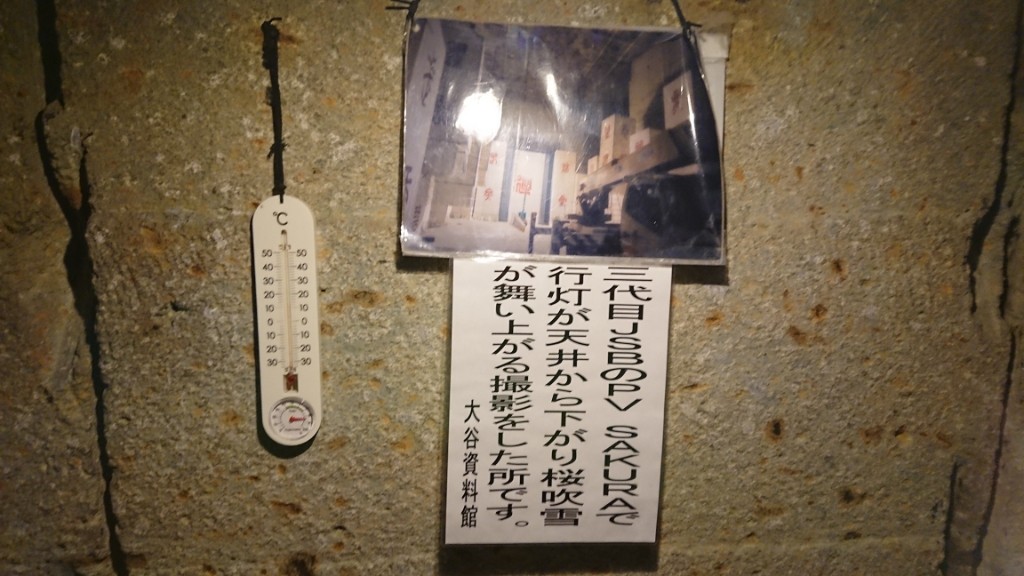 三代目JSBのPV SAKURAで
行灯が天井から下がり桜吹雪
が舞い上がる撮影をした所です。
大谷資料館
℃
50 50
40 40
30 30
20 20
10 10
0 0
10 10
20 20
30 30